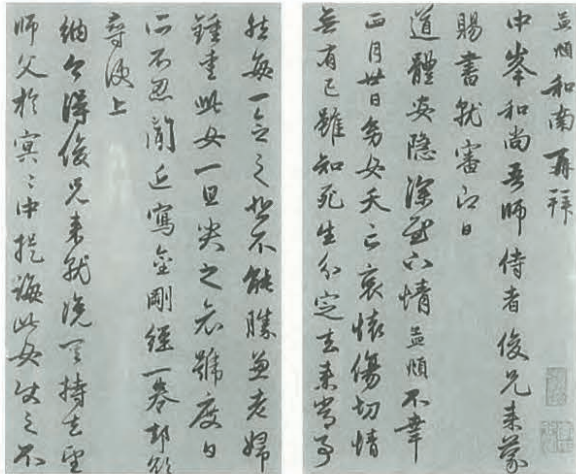 孟頫和南再拜
中峯和尚吾師侍者俊兄來蒙
賜書就審即日
道體安隱深慰下情孟頫不幸
正月廿日幼女夭亡哀懷傷切情
無有已雖知死生分定去來常事
然每一念之悲不能勝兼老婦
鍾愛此女一旦哭之哀號度日
所不忍聞近寫金剛經一卷却欲
尋便上
納今得俊兄來就浼其持去望
師父於冥〻中提誨此女使之不